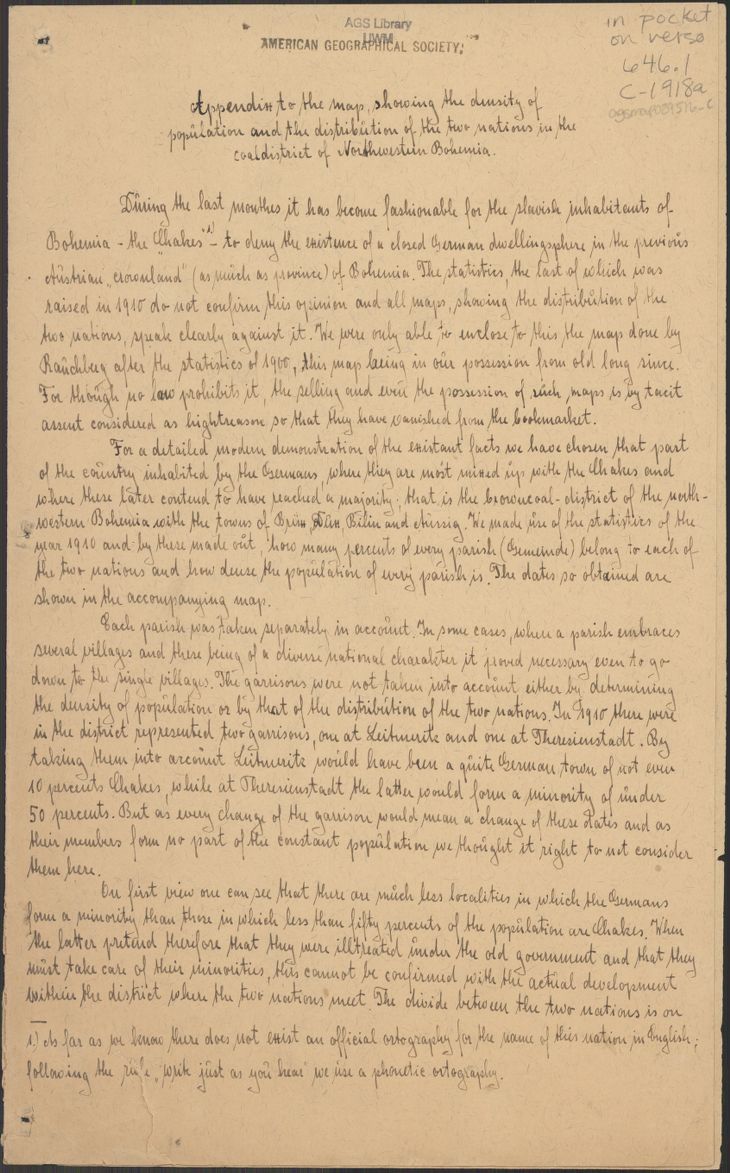 AGS Library
UWM
AMERICAN GEOGRAPHICAL SOCIETY,
in pocket
on verso
646.1
C-1918a
Appendix to the map, showing the density of
population and the distribution of the two nations in the
coaldistrict of Northwestern Bohemia.
During the last monthes it has become fashionable for the slavish inhabitents of
Bohemia - the "Chakes" 1) - to deny the existence of a closed German dwellingsphere in the previous
Austrian „crownland" (as much as province) of Bohemia. The statistics, the last of which was
raised in 1910 do not confirm this opinion and all maps, showing the distribution of the
two nations, speak clearly against it. We were only able to enclose to this the map done by
Rauchberg after the statistics of 1900, this map being in our possession from old long since.
For though no law prohibits it, the selling and even the possession of such maps is by tacit
assent considered as hightreason, so that they have vanished from the bookmarket.
For a detailed modern demonstration of the existant facts we have chosen that part
of the country inhabited by the Germans, where they are most mixed up with the Chakes and
where these later contend to have reached a majority; that is the browncoal-district of the north-
western Bohemia with the towns of Brüx, Dux, Bilin and Aussig. We made use of the statistics of the
year 1910 and by these made out, how many percents of every parish (Gemeinde) belong to each of
the two nations and how dense the population of every parish is. The dates so obtained are
shown in the accompanying map.
Each parish was taken separately in account. In some cases, where a parish embraces
several villages and these being of a diverse national charakter it proved necessary even to go
down to the single villages. The garrisons were not taken into account either by determining
the density of population or by that of the distribution of the two nations. In 1910 there were
in the district represented two garrisons, one at Leitmeritz and one at Theresienstadt. By
taking them into account Leitmeritz would have been a quite German town of not even
10 percents Chakes, while at Theresienstadt the latter would form a minority of under
50 percents. But as every change of the garrison would mean a change of these dates and as
their members form no part of the constant population we thought it right to not consider
them here.
On first view one can see that there are much less localities in which the Germans
form a minority than those in which less than fifty percents of the population are Chakes. When
the latter pretend therefore that they were illtreated under the old government and that they
must take care of their minorities, this cannot be confirmed with the actual development
within the district where the two nations meet. The divide between the two nations is on
1.) As far as we know there does not exist an official ortography for the name of this nation in English;
following the rule „write just as you hear" we use a phonetic ortography.